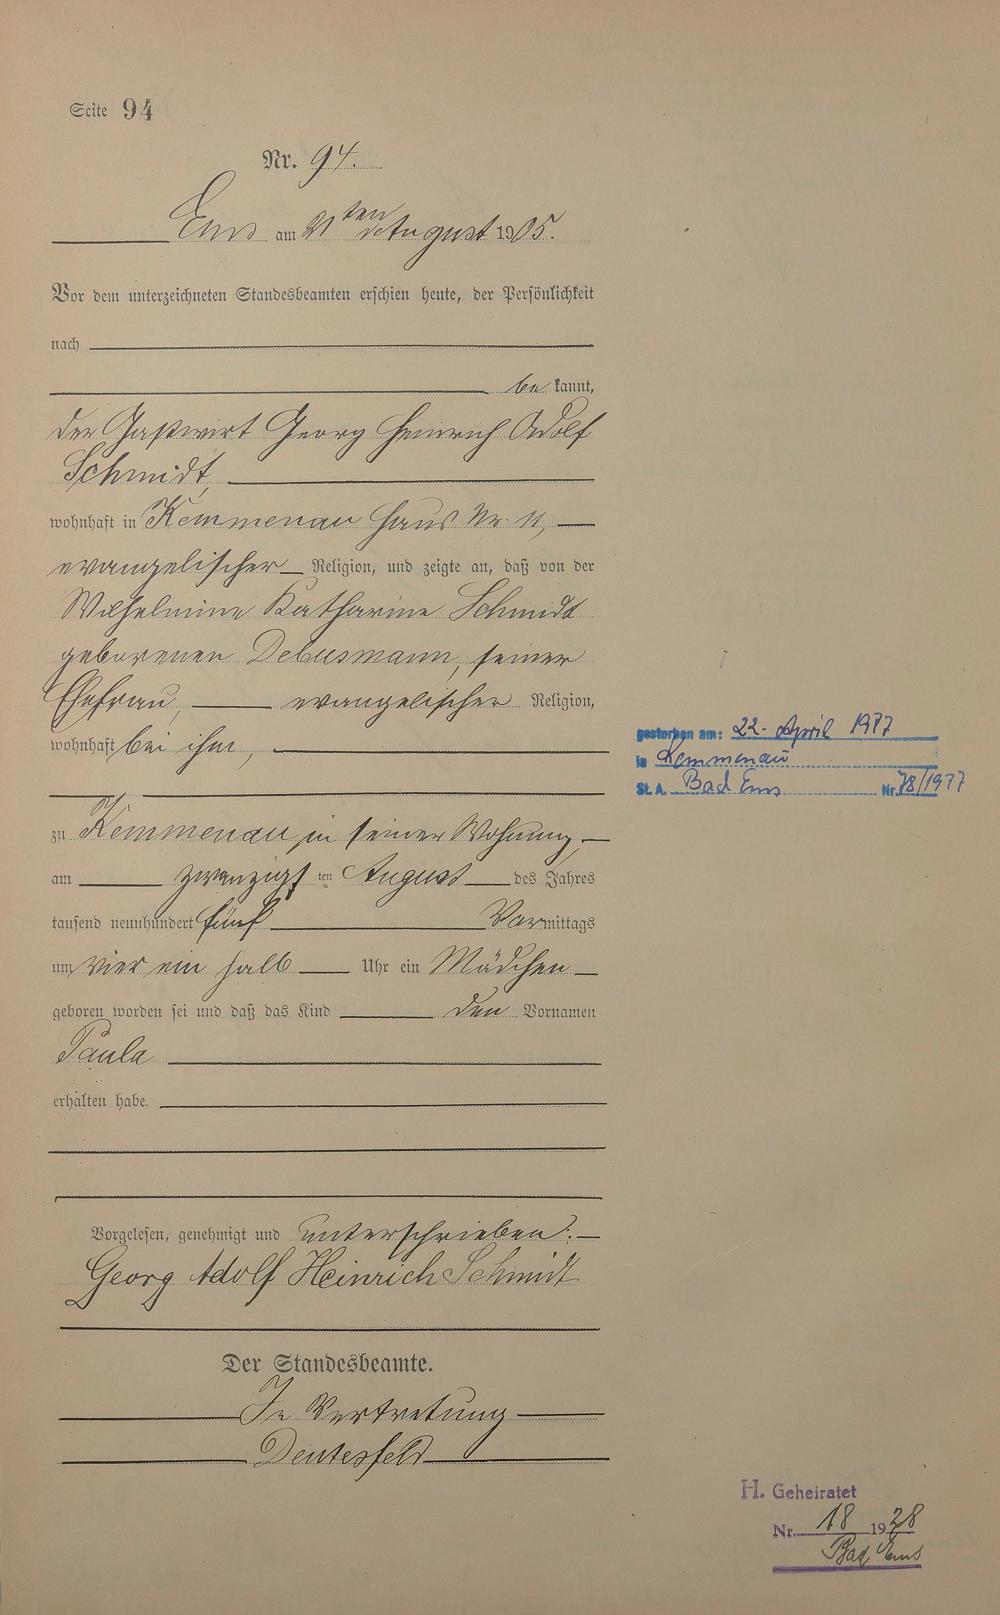 Seite 94
Nr. 94.
Ems am 21ten August 1905.
Vor dem unterzeichneten Standesbeamten erschien heute, der Persönlichkeit
nach
be kannt,
der Gastwirt Georg Heinrich Adolf
Schmidt,
wohnhaft in Kemmenau Haus Nr. 11,
evangelischer Religion, und zeigte an, daß von der
Wilhelmine Katharine Schmidt
geborenen Debusmann, seiner
Ehefrau, evangelischer Religion,
wohnhaft bei ihm,
zu Kemmenau, in seiner Wohnung,
am zwanzigsten August des Jahres
tausend neunhundert fünf Vormittags
um vier ein halb Uhr ein Mädchen
geboren worden sei und daß das Kind den Vornamen
Paula
erhalten habe.
Vorgelesen, genehmigt und unterschrieben:
Georg Adolf Heinrich Schmidt
Der Standesbeamte.
In Vertretung
gestorben am: 22. April 1977
in Kemmenau
St. A. Bad Ems Nr. 78/1977
H. Geheiratet
Nr. 18 1928
Bad Ems